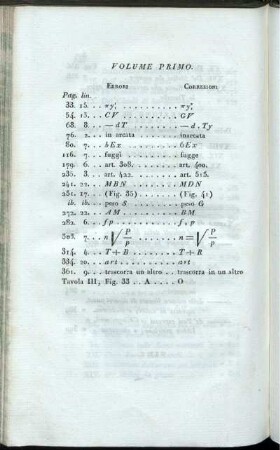 VOLUME PRIMO.
ERRORI CORREZIONI
Pag. lin.
33. 15. . . πy', . . . . . . . . . . πy',
54. 13. . . CV . . . . . . . . . . GV
68. 8. . . — dT . . . . . . . . . — d, Ty
76. 2. . . in creata . . . . . . . increata
80. 7. . . bEx . . . . . . . . . . 6Ex
116. 7. . . fuggi . . . . . . . . . fugge
179. 6. . . art. 308. . . . . . . . art. 400.
235. 3. . . art. 422. . . . . . . . art. 515.
241. 22. . . MBN . . . . . . . . MDN
251. 17. . . (Fig. 35) . . . . . . (Fig. 41)
ib. ib. . . peso S . . . . . . . . peso G
272. 22. . . AM . . . . . . . . . BM
282. 6. . . fp . . . . . . . . . . f, p
303. 7. . . n√p/p . . . . . . . . n=√p/p
314. 4. . . T+B . . . . . . . . T+R
334. 20. . . art . . . . . . . . . art
361. 9. . . trascorra un altro . . trascorra in un altro
Tavola III, Fig. 33 . . A . . . . O